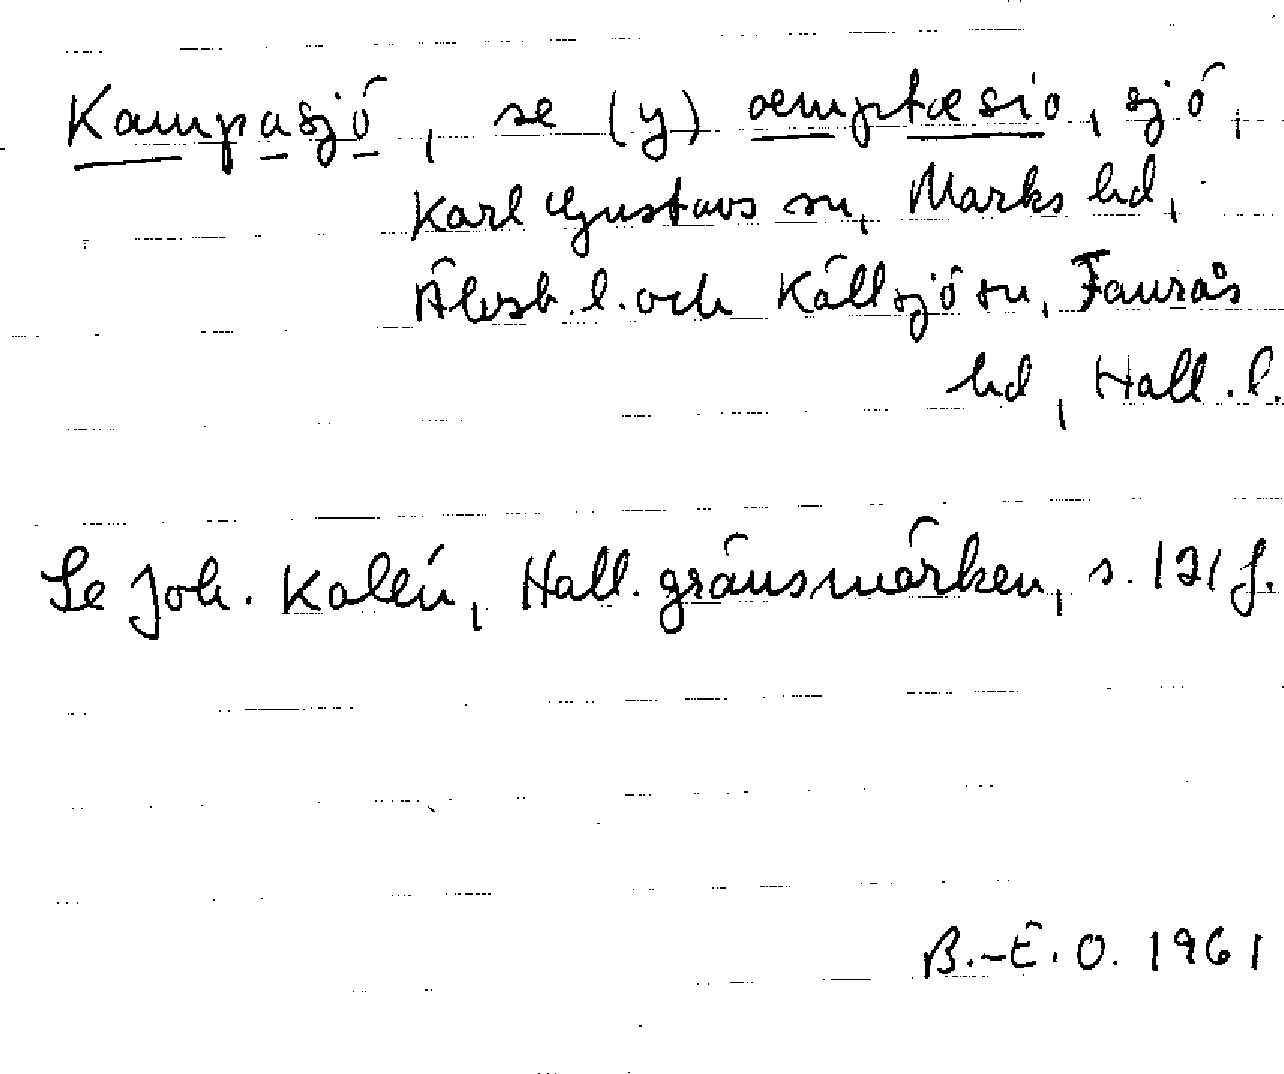 Kampasjö, se (y) æmptæsio, sjö,
Karl Gustavs sn, Marks hd,
Älvsb. l. och Källsjö sn, Faurås
hd, Hall. l.
Se Joh. Kalén, Hall. gränsmärken, s. 121 f.
B.-E. O. 1961